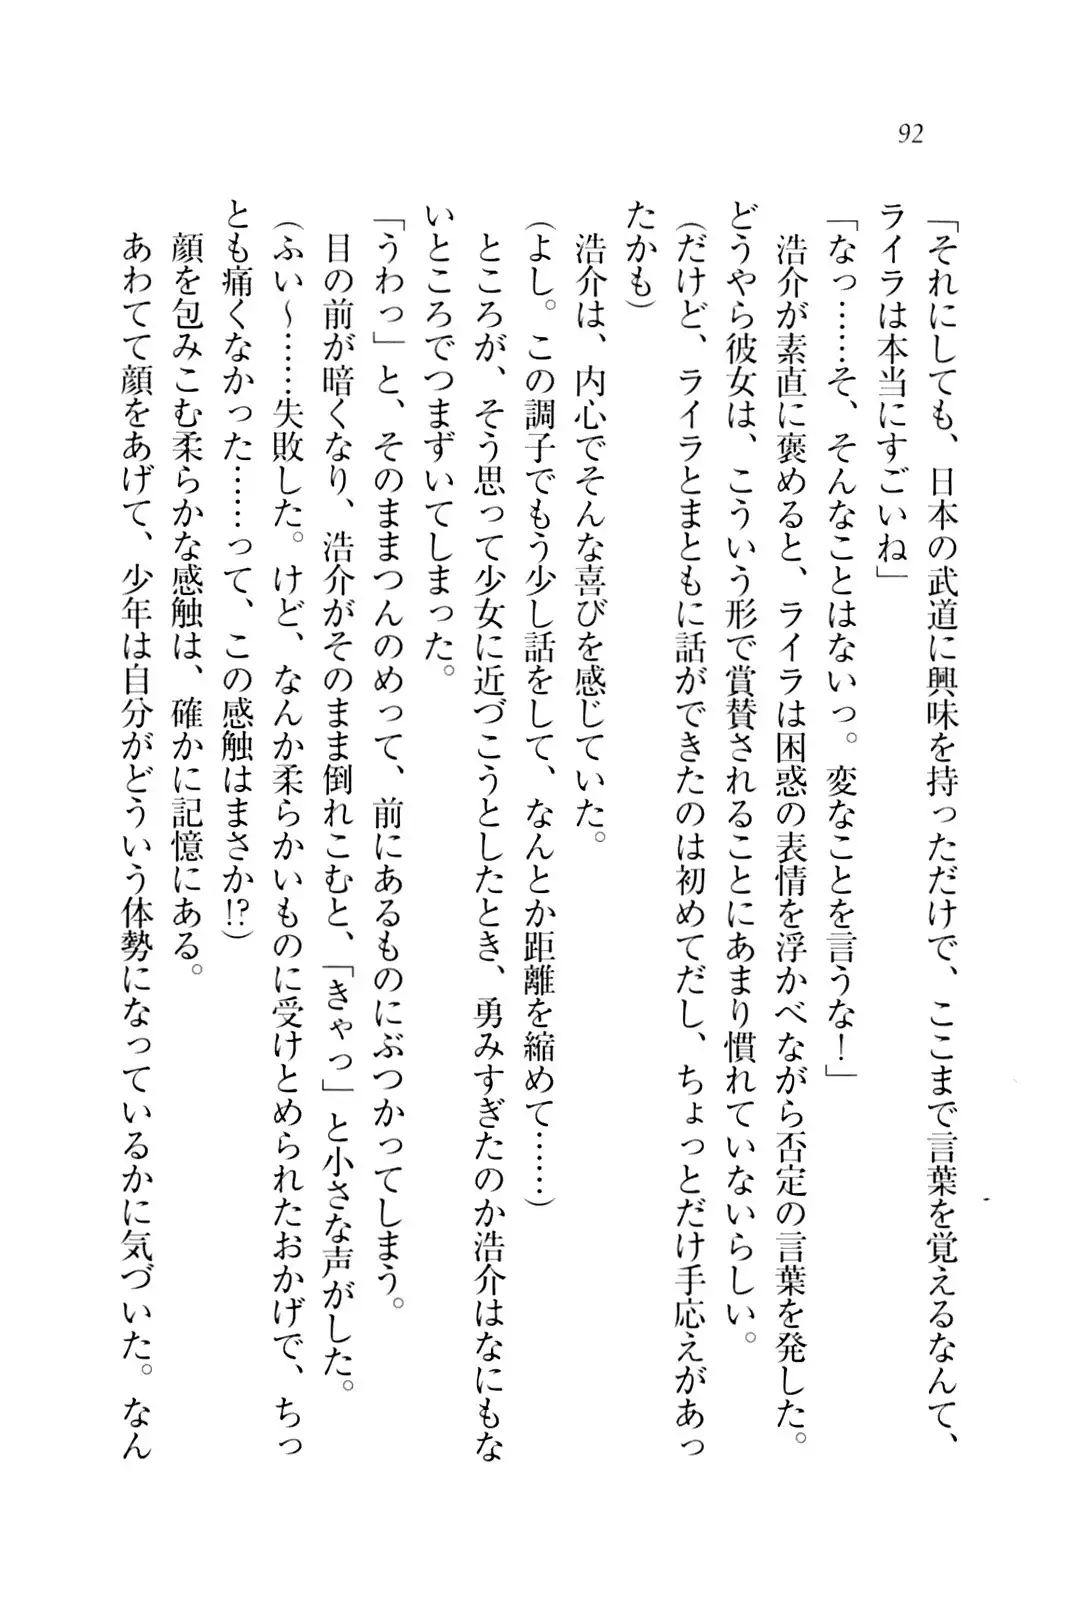 92
「それにしても、日本の武道に興味を持っただけで、ここまで言葉を覚えるなんて、
ライラは本当にすごいね」
「なっ……そ、そんなことはないっ。変なことを言うな！」
浩介が素直に褒めると、ライラは困惑の表情を浮かべながら否定の言葉を発した。
どうやら彼女は、こういう形で賞賛されることにあまり慣れていないらしい。
（だけど、ライラとまともに話ができたのは初めてだし、ちょっとだけ手応えがあっ
たかも）
浩介は、内心でそんな喜びを感じていた。
（よし。この調子でもう少し話をして、なんとか距離を縮めて……）
ところが、そう思って少女に近づこうとしたとき、勇みすぎたのか浩介はなにもな
いところでつまずいてしまった。
「うわっ」と、そのままつんのめって、前にあるものにぶつかってしまう。
目の前が暗くなり、浩介がそのまま倒れこむと、「きゃっ」と小さな声がした。
（ふい〜……失敗した。けど、なんか柔らかいものに受けとめられたおかげで、ちっ
とも痛くなかった……って、この感触はまさか!?）
顔を包みこむ柔らかな感触は、確かに記憶にある。
あわてて顔をあげて、少年は自分がどういう体勢になっているかに気づいた。なん